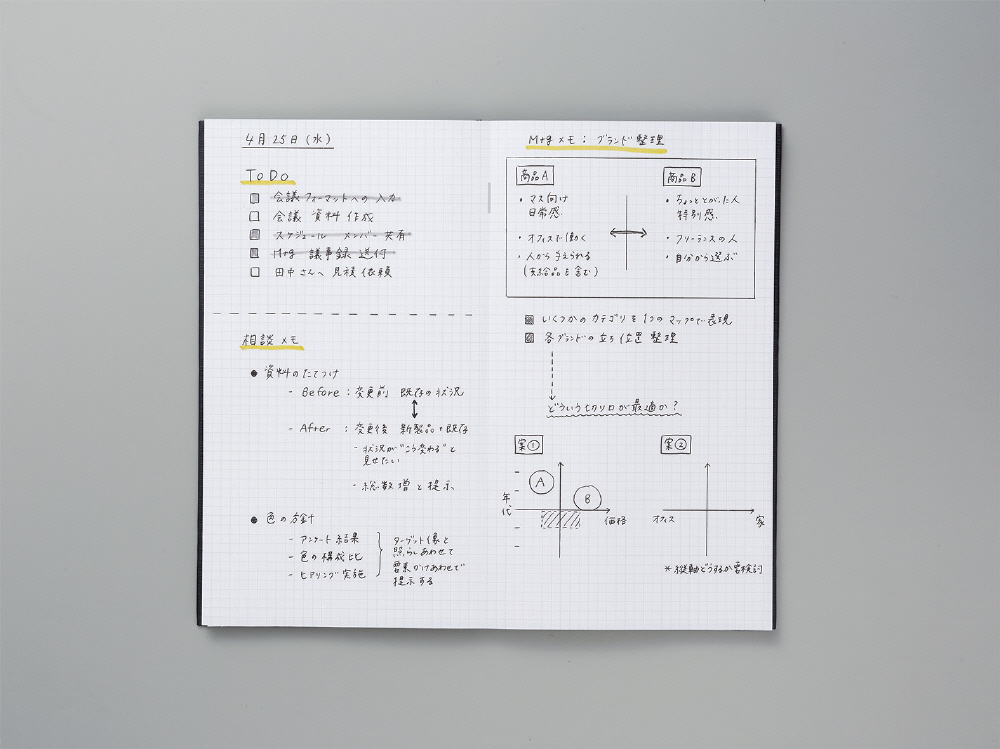 4月25日(水)
ToDo
会議フォーマットへの入力
会議 資料 作成
スケジュール メンバー共有
Mtg 議事録 送付
田中さんへ 見積 依頼
相談メモ
● 資料のたてつけ
- Before：変更前 既存の状況
- After：変更後 新製品+既存
- 状況が"こう変わる"と
見せたい
- 総数増と提示
● 色の方針
- アンケート結果
- 色の構成比
- ヒアリング実施
ターゲット像と
照らしあわせて
要素かけあわせで
提示する
Mtgメモ：ブランド整理
商品A
・マス向け
日常感
・オフィスで働く
・人から与えられる
(支給品も含む)
商品B
・ちょっととがった人
特別感
・フリーランスの人
・自分から選ぶ
いくつかのカテゴリを1つのマップで表現
各ブランドの立ち位置 整理
どういう切り口が最適か?
案①
A
B
年代
価格
案②
オフィス
家
*縦軸どうするか要検討